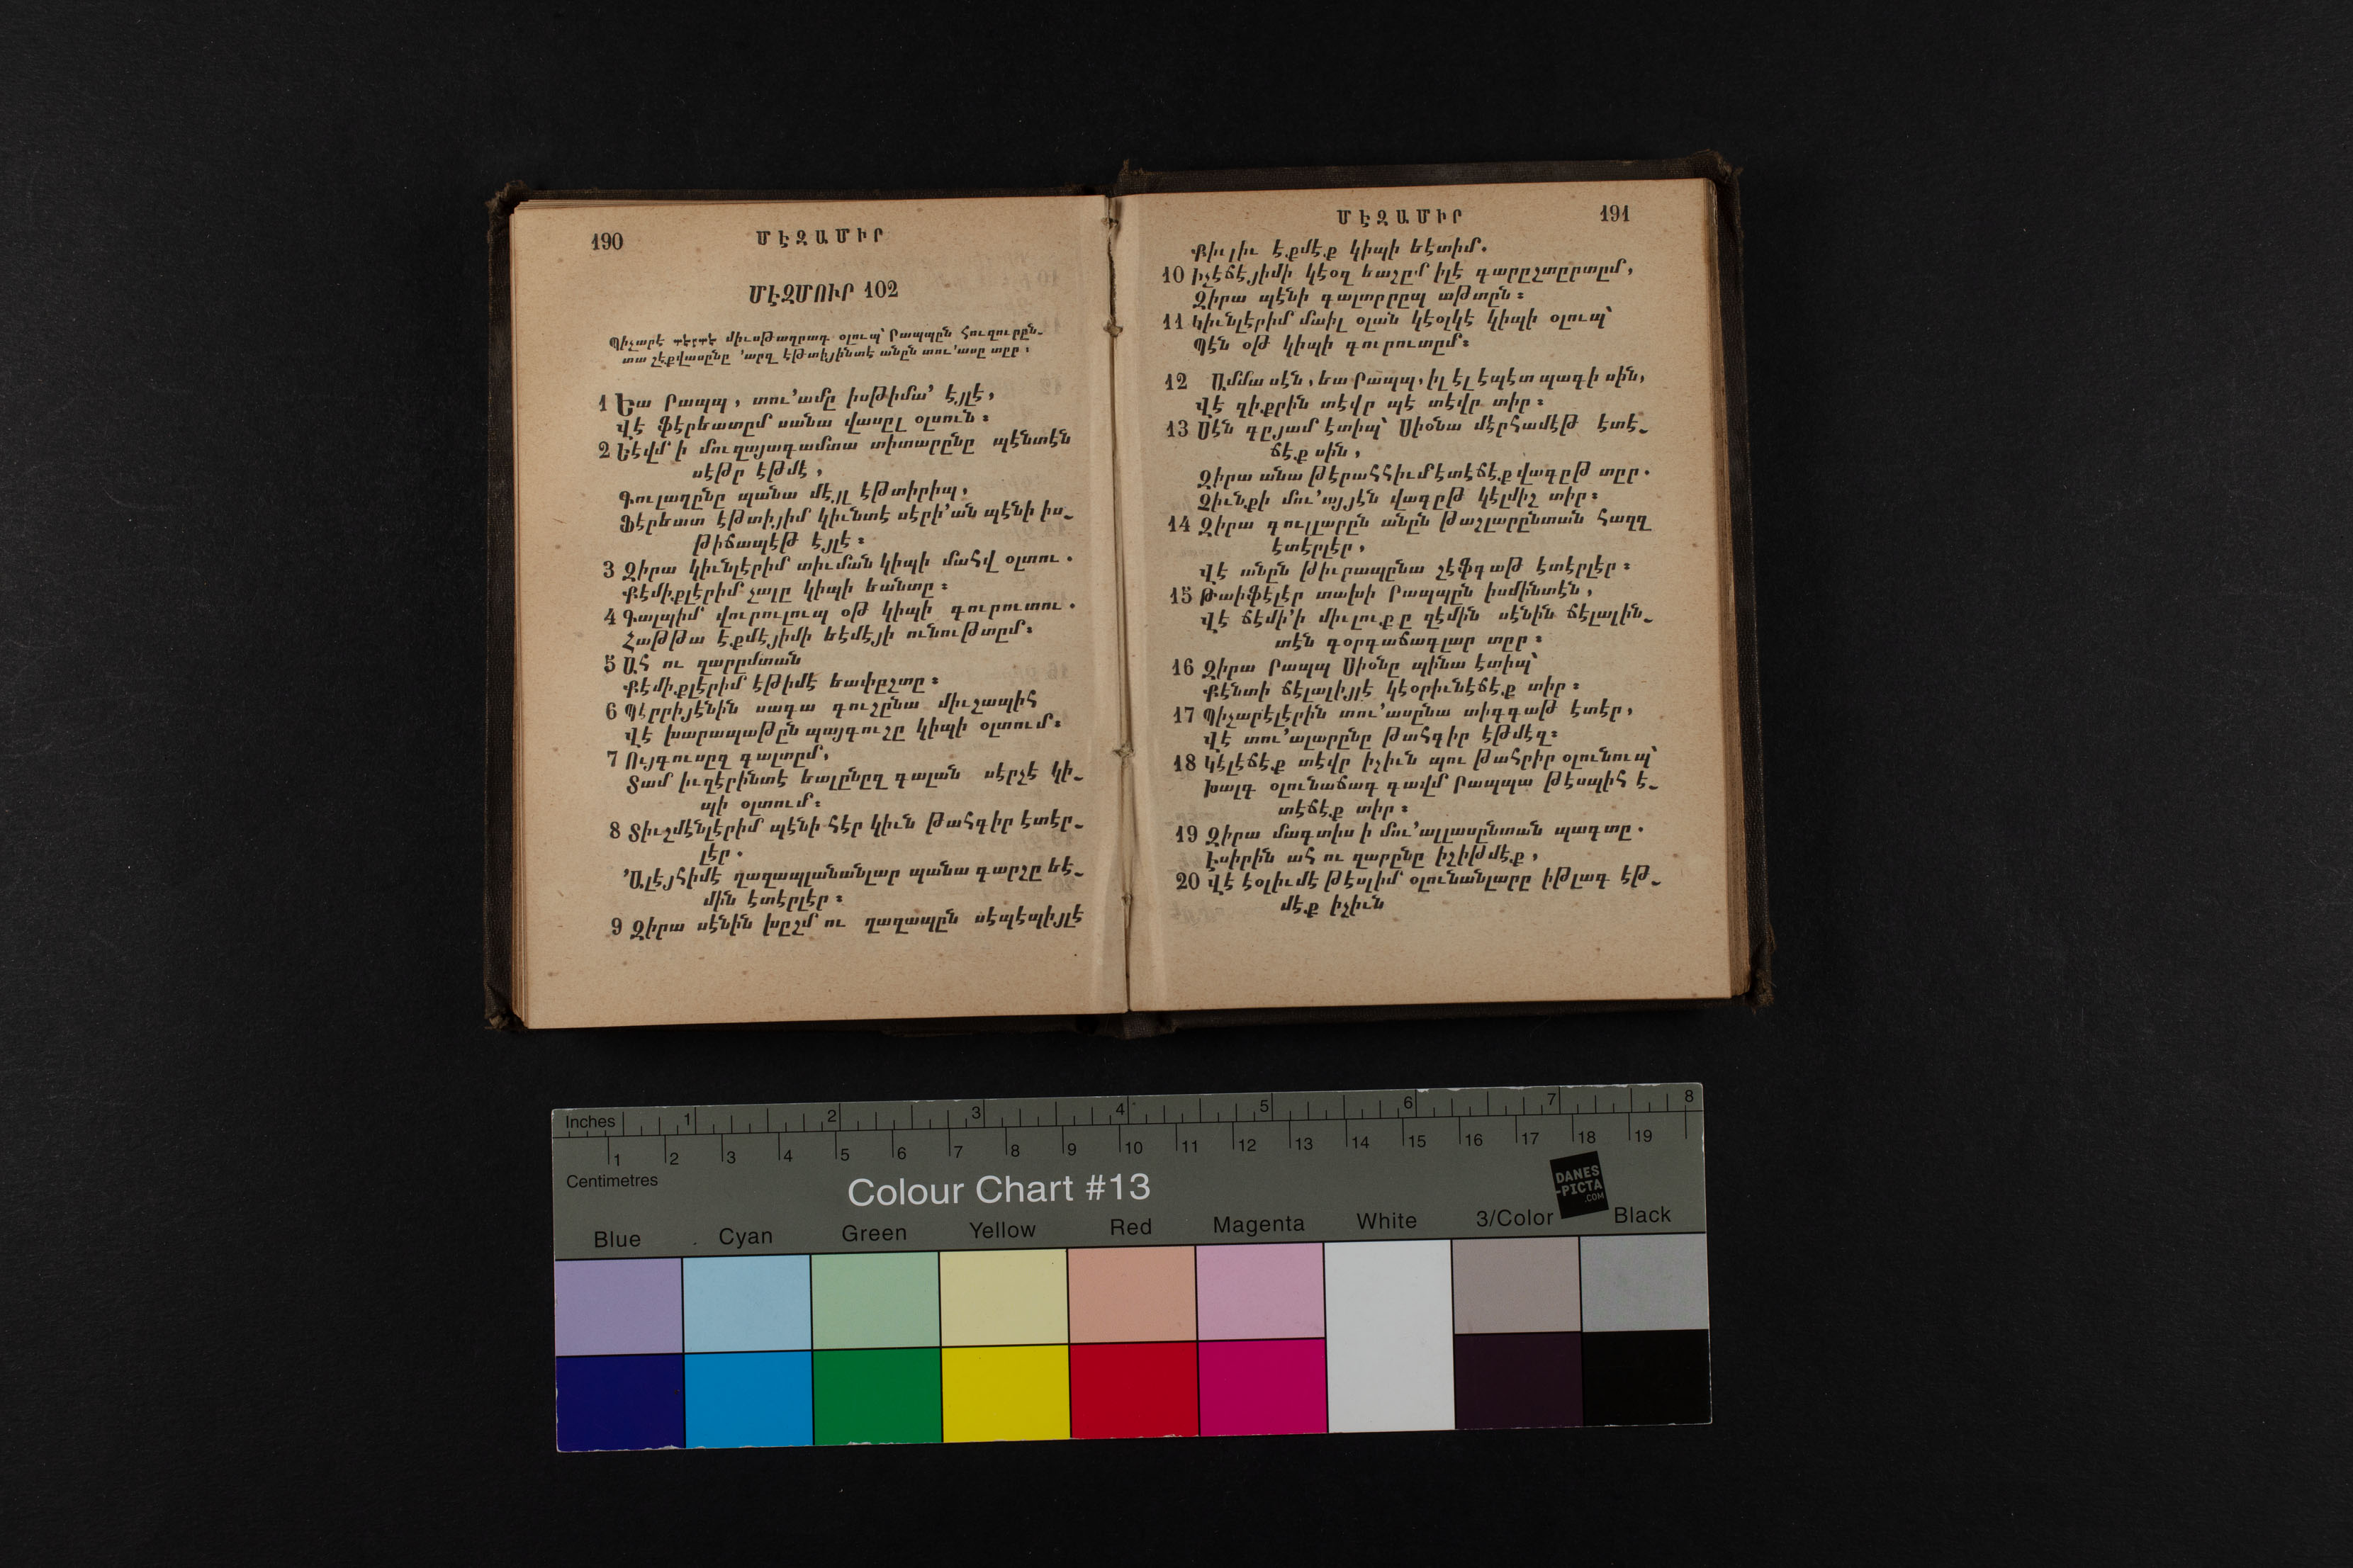 190
ՄԷԶԱՄԻՐ
ՄԷԶՄՈՒՐ 102
Պիչարէ տէրտէ միւսթաղրադ օլուպ՝ Րապպըն հուզուրըն֊
տա շէքվասընը ՚արզ էթտիյինտէ անըն տու՚ասը տըր ։
1 Եա Րապպ, տու՚ամը իսթիմա՚ էյլէ,
Վէ ֆէրեատըմ սանա վասըլ օլսուն ։
2 Եէվմ ի մուզայագամտա տիտարընը պէնտէն
սէթր էթմէ,
Գուլաղընը պանա մէյլ էթտիրիպ,
Ֆէրեատ էթտիյիմ կիւնտէ սէրի՚ան պէնի իս֊
թիճապէթ էյլէ ։
3 Զիրա կիւնլէրիմ տիւման կիպի մահվ օլտու .
Քէմիքլէրիմ չալը կիպի եանտը ։
4 Գալպիմ վուրուլուպ օթ կիպի գուրուտու .
Հաթթա էքմէյիմի եէմէյի ունութտըմ ։
5 Ահ ու զարըմտան
Քէմիքլէրիմ էթիմէ եափըշտը ։
6 Պէրրիյէնին սագա գուշընա միւշապիհ
Վէ խարապաթըն պայգուշը կիպի օլտում ։
7 Ույգուսըզ գալտըմ,
Տամ իւզէրինտէ եալընըզ գալան սէրչէ կի֊
պի օլտում ։
8 Տիւշմէնլէրիմ պէնի հէր կիւն թահգիր էտէր֊
լէր .
՚Ալէյհիմէ ղազապլանանլար պանա գարշը եէ֊
մին էտէրլէր ։
9 Զիրա սէնին խըշմ ու ղազապըն սէպէպիյլէ
ՄԷԶԱՄԻՐ
191
Քիւլիւ էքմէք կիպի եէտիմ .
10 Իչէճէյիմի կէօզ եաշըմ իլէ գարըշտըրտըմ,
Զիրա պէնի գալտըրըպ աթտըն ։
11 Կիւնլէրիմ մաիլ օլան կէօլկէ կիպի օլուպ՝
Պէն օթ կիպի գուրուտըմ ։
12 Ամմա սէն, եա Րապպ, իլ էլ էպէտ պագի սին,
Վէ զիքրին տէվր պէ տէվր տիր ։
13 Սէն գըյամ էտիպ՝ Սիօնա մէրհամէթ էտէ֊
ճէք սին,
Զիրա անա թէրահհիւմ էտէճէք վագըթ տըր .
Զիւնքի մու՚այյէն վագըթ կէլմիշ տիր ։
14 Զիրա գուլլարըն անըն թաշլարընտան հազզ
էտէրլէր,
Վէ անըն թիւրապընա շէֆգաթ էտէրլէր ։
15 Թաիֆէլէր տախի Րապպըն իսմինտէն,
Վէ ճէմի՚ի միւլուքը զէմին սէնին ճէլալին֊
տէն գօրգաճագլար տըր ։
16 Զիրա Րապպ Սիօնը պինա էտիպ՝
Քէնտի ճէլալիյլէ կէօրիւնէճէք տիր ։
17 Պիչարէլէրին տու՚ասընա տիգգաթ էտէր,
Վէ տու՚ալարընը թահգիր էթմէզ ։
18 Կէլէճէք տէվր իչիւն պու թահրիր օլունուպ՝
Խալգ օլունաճագ գավմ Րապպա թէսպիհ է֊
տէճէք տիր ։
19 Զիրա մագտիս ի մու՚ալլասընտան պագտը .
Էսիրին ահ ու զարընը իշիթմէք,
20 Վէ էօլիւմէ թէսլիմ օլունանլարը իթլագ էթ֊
մէք իչիւն
Inches 1 2 3 4 5 6 7 8
1 2 3 4 5 6 7 8 9 10 11 12 13 14 15 16 17 18 19
Centimetres
Colour Chart #13
DANES
-PICTA
.COM
Blue Cyan Green Yellow Red Magenta White 3/Color Black